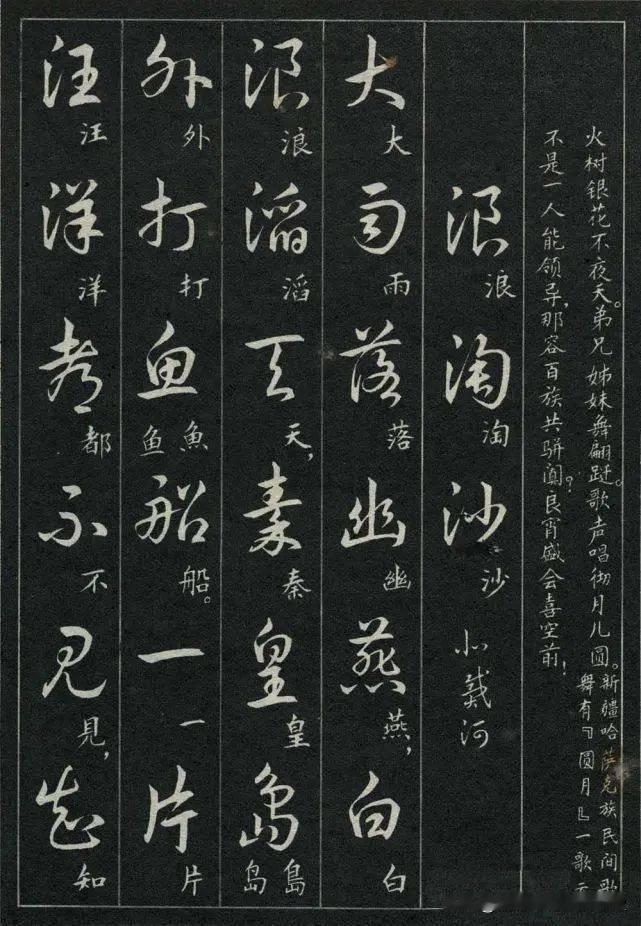 火树银花不夜天。弟兄姊妹舞翩跹。歌声唱彻月儿圆。
新疆哈萨克族民间歌
舞有『圆月』一歌云
不是一人能领导,那容百族共骈阗?良宵盛会喜空前!
浪淘沙
浪淘沙
北戴河
大雨落幽燕白
大雨落幽燕,白
浪滔天秦皇岛
浪滔天,秦皇島岛
外打鱼船一片
外打魚鱼船。一片
汪洋都不见知
汪洋都不見,知